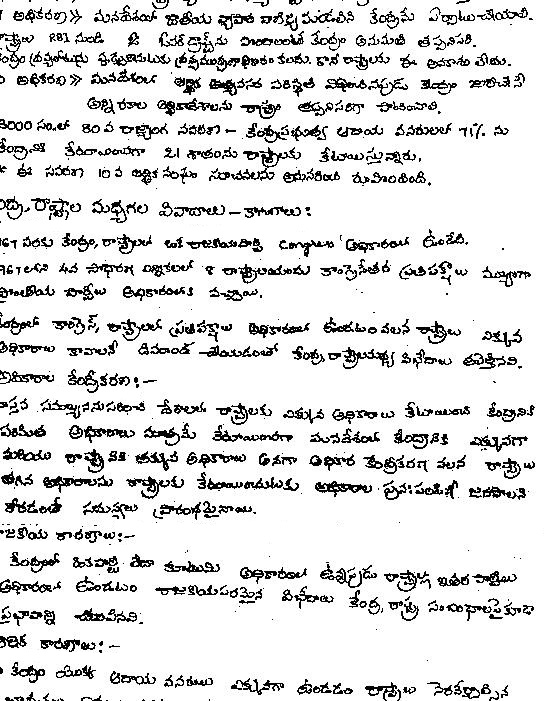 అధికరణ» మనదేశంలో జాతీయ స్థాయి కేంద్రమే ఏర్పాటుచేయాలి.
RBI నుండి ఓవర్ డ్రాఫ్ట్ ను పొందాలంటే కేంద్రం అనుమతి తప్పనిసరి.
కలదు. కాని రాష్ట్రాలకు ఈ అవకాశం లేదు.
అధికరణ» మనదేశంలో ఆర్థిక అత్యవసర పరిస్థితి విధించినప్పుడు కేంద్రం జారీచేసే
అన్ని రకాల ఆర్థికాదేశాలను రాష్ట్రం తప్పనిసరిగా పాటించాలి.
2000 సం.లో 80 వ రాజ్యాంగ సవరణ – కేంద్రప్రభుత్వ ఆదాయ వనరులలో 71% ను
కేంద్రానికి కేటాయించగా 21 శాతంను రాష్ట్రాలకు కేటాయిస్తున్నారు.
* ఈ సవరణ 10 వ ఆర్థిక సంఘం సూచనలను అనుసరించి రూపొందింది.
కేంద్ర, రాష్ట్రాల మధ్యగల వివాదాలు – కారణాలు:
1967 వరకు కేంద్రం, రాష్ట్రాలలో ఒకే రాజకీయపార్టీ Congress అధికారంలో ఉండేది.
1967లో 4వ సాధారణ ఎన్నికలలో 8 రాష్ట్రాలయందు కాంగ్రెసేతర ప్రతిపక్షాలు ముఖ్యంగా
ప్రాంతీయ పార్టీలు అధికారంలోకి వచ్చాయి.
కేంద్రంలో కాంగ్రెస్, రాష్ట్రాలలో ప్రతిపక్షాలు అధికారంలో ఉండటం వలన రాష్ట్రాలు ఎక్కువ
అధికారాలు కావాలని డిమాండ్ చేయడంతో కేంద్ర, రాష్ట్రాలమధ్య విభేదాలు తలెత్తినవి.
అధికారాల కేంద్రీకరణ:-
వాస్తవ సమాఖ్యననుసరించిన దేశాలలో రాష్ట్రాలకు ఎక్కువ అధికారాలు కేటాయించి కేంద్రానికి
పరిమిత అధికారాలు మాత్రమే కేటాయించగా మనదేశంలో కేంద్రానికి ఎక్కువగా
మరియు రాష్ట్రానికి తక్కువ అధికారాలు అనగా అధికార కేంద్రీకరణ వలన రాష్ట్రాలు
తగిన అధికారాలను రాష్ట్రాలకు కేటాయించుటకు అధికారాల పునఃపంపిణీ జరపాలని
కోరడంతో సమస్యలు ప్రారంభమైనాయి.
రాజకీయ కారణాలు:-
కేంద్రంలో ఒకపార్టీ లేదా కూటమి అధికారంలో ఉన్నప్పుడు రాష్ట్రాల్లో ఇతర పార్టీలు
అధికారంలో ఉండటం రాజకీయపరమైన విభేదాలు కేంద్ర, రాష్ట్ర సంబంధాలపై కూడా
ప్రభావాన్ని చూపినవి.
ఆర్థిక కారణాలు:-
కేంద్రం యొక్క ఆదాయ వనరులు ఎక్కువగా ఉండడం రాష్ట్రాలు నెరవేర్చాల్సిన